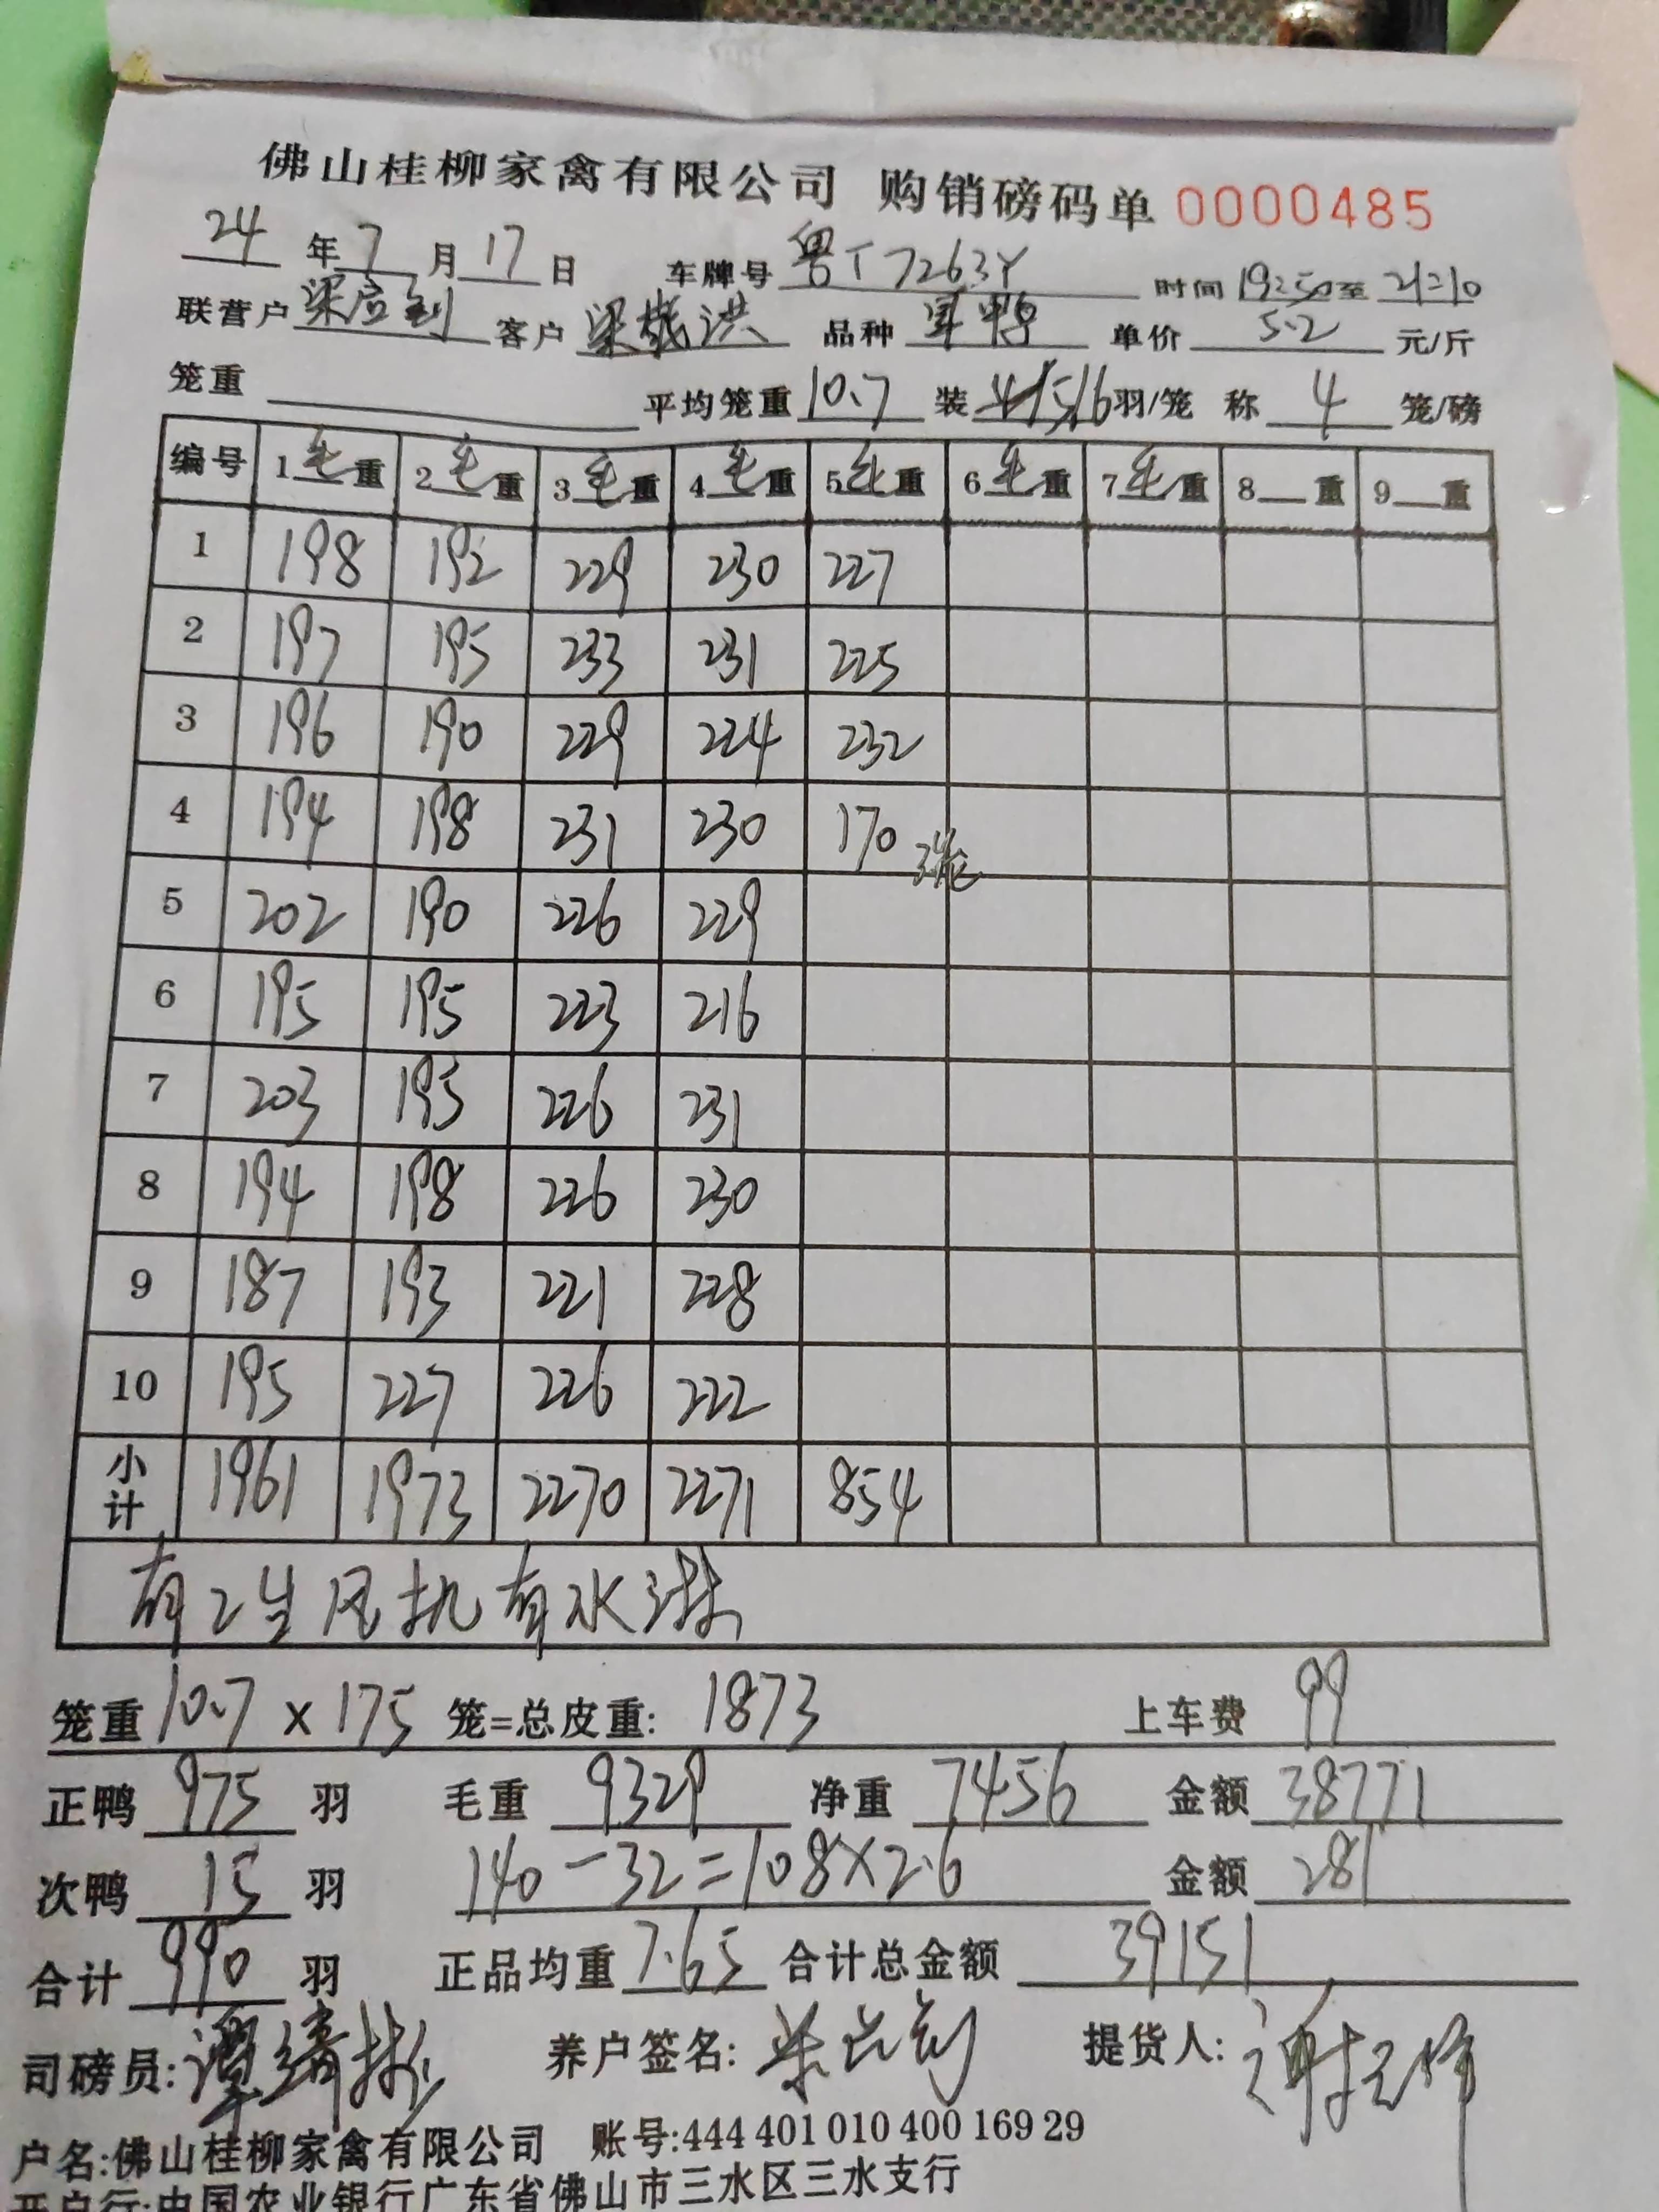 佛山桂柳家禽有限公司 购销磅码单 0000485
24 年 7 月 17 日 车牌号 粤T7263Y 时间 19:50 至 21:10
联营户 客户 梁 洪 品种 单价 5.2 元/斤
笼重 平均笼重 10.7 装 4/5/6 羽/笼 称 4 笼/磅
编号 1毛重 2毛重 3毛重 4毛重 5毛重 6毛重 7毛重 8 重 9 重
1 198 192 229 230 227
2 197 195 233 231 225
3 196 190 229 224 232
4 194 198 231 230 170 3笼
5 202 190 226 229
6 195 195 223 216
7 203 195 226 231
8 194 198 226 230
9 187 193 221 228
10 195 227 226 222
小计 1961 1973 2270 2271 854
有2生风机有水淋
笼重 10.7 x 175 笼=总皮重: 1873 上车费 99
正鸭 975 羽 毛重 9329 净重 7456 金额 38771
次鸭 15 羽 140-32=108×2.6 金额 281
合计 990 羽 正品均重 7.65 合计总金额 39151
司磅员: 养户签名: 提货人:
户名:佛山桂柳家禽有限公司 账号:444 401 010 400 169 29
开户行:中国农业银行广东省佛山市三水区三水支行